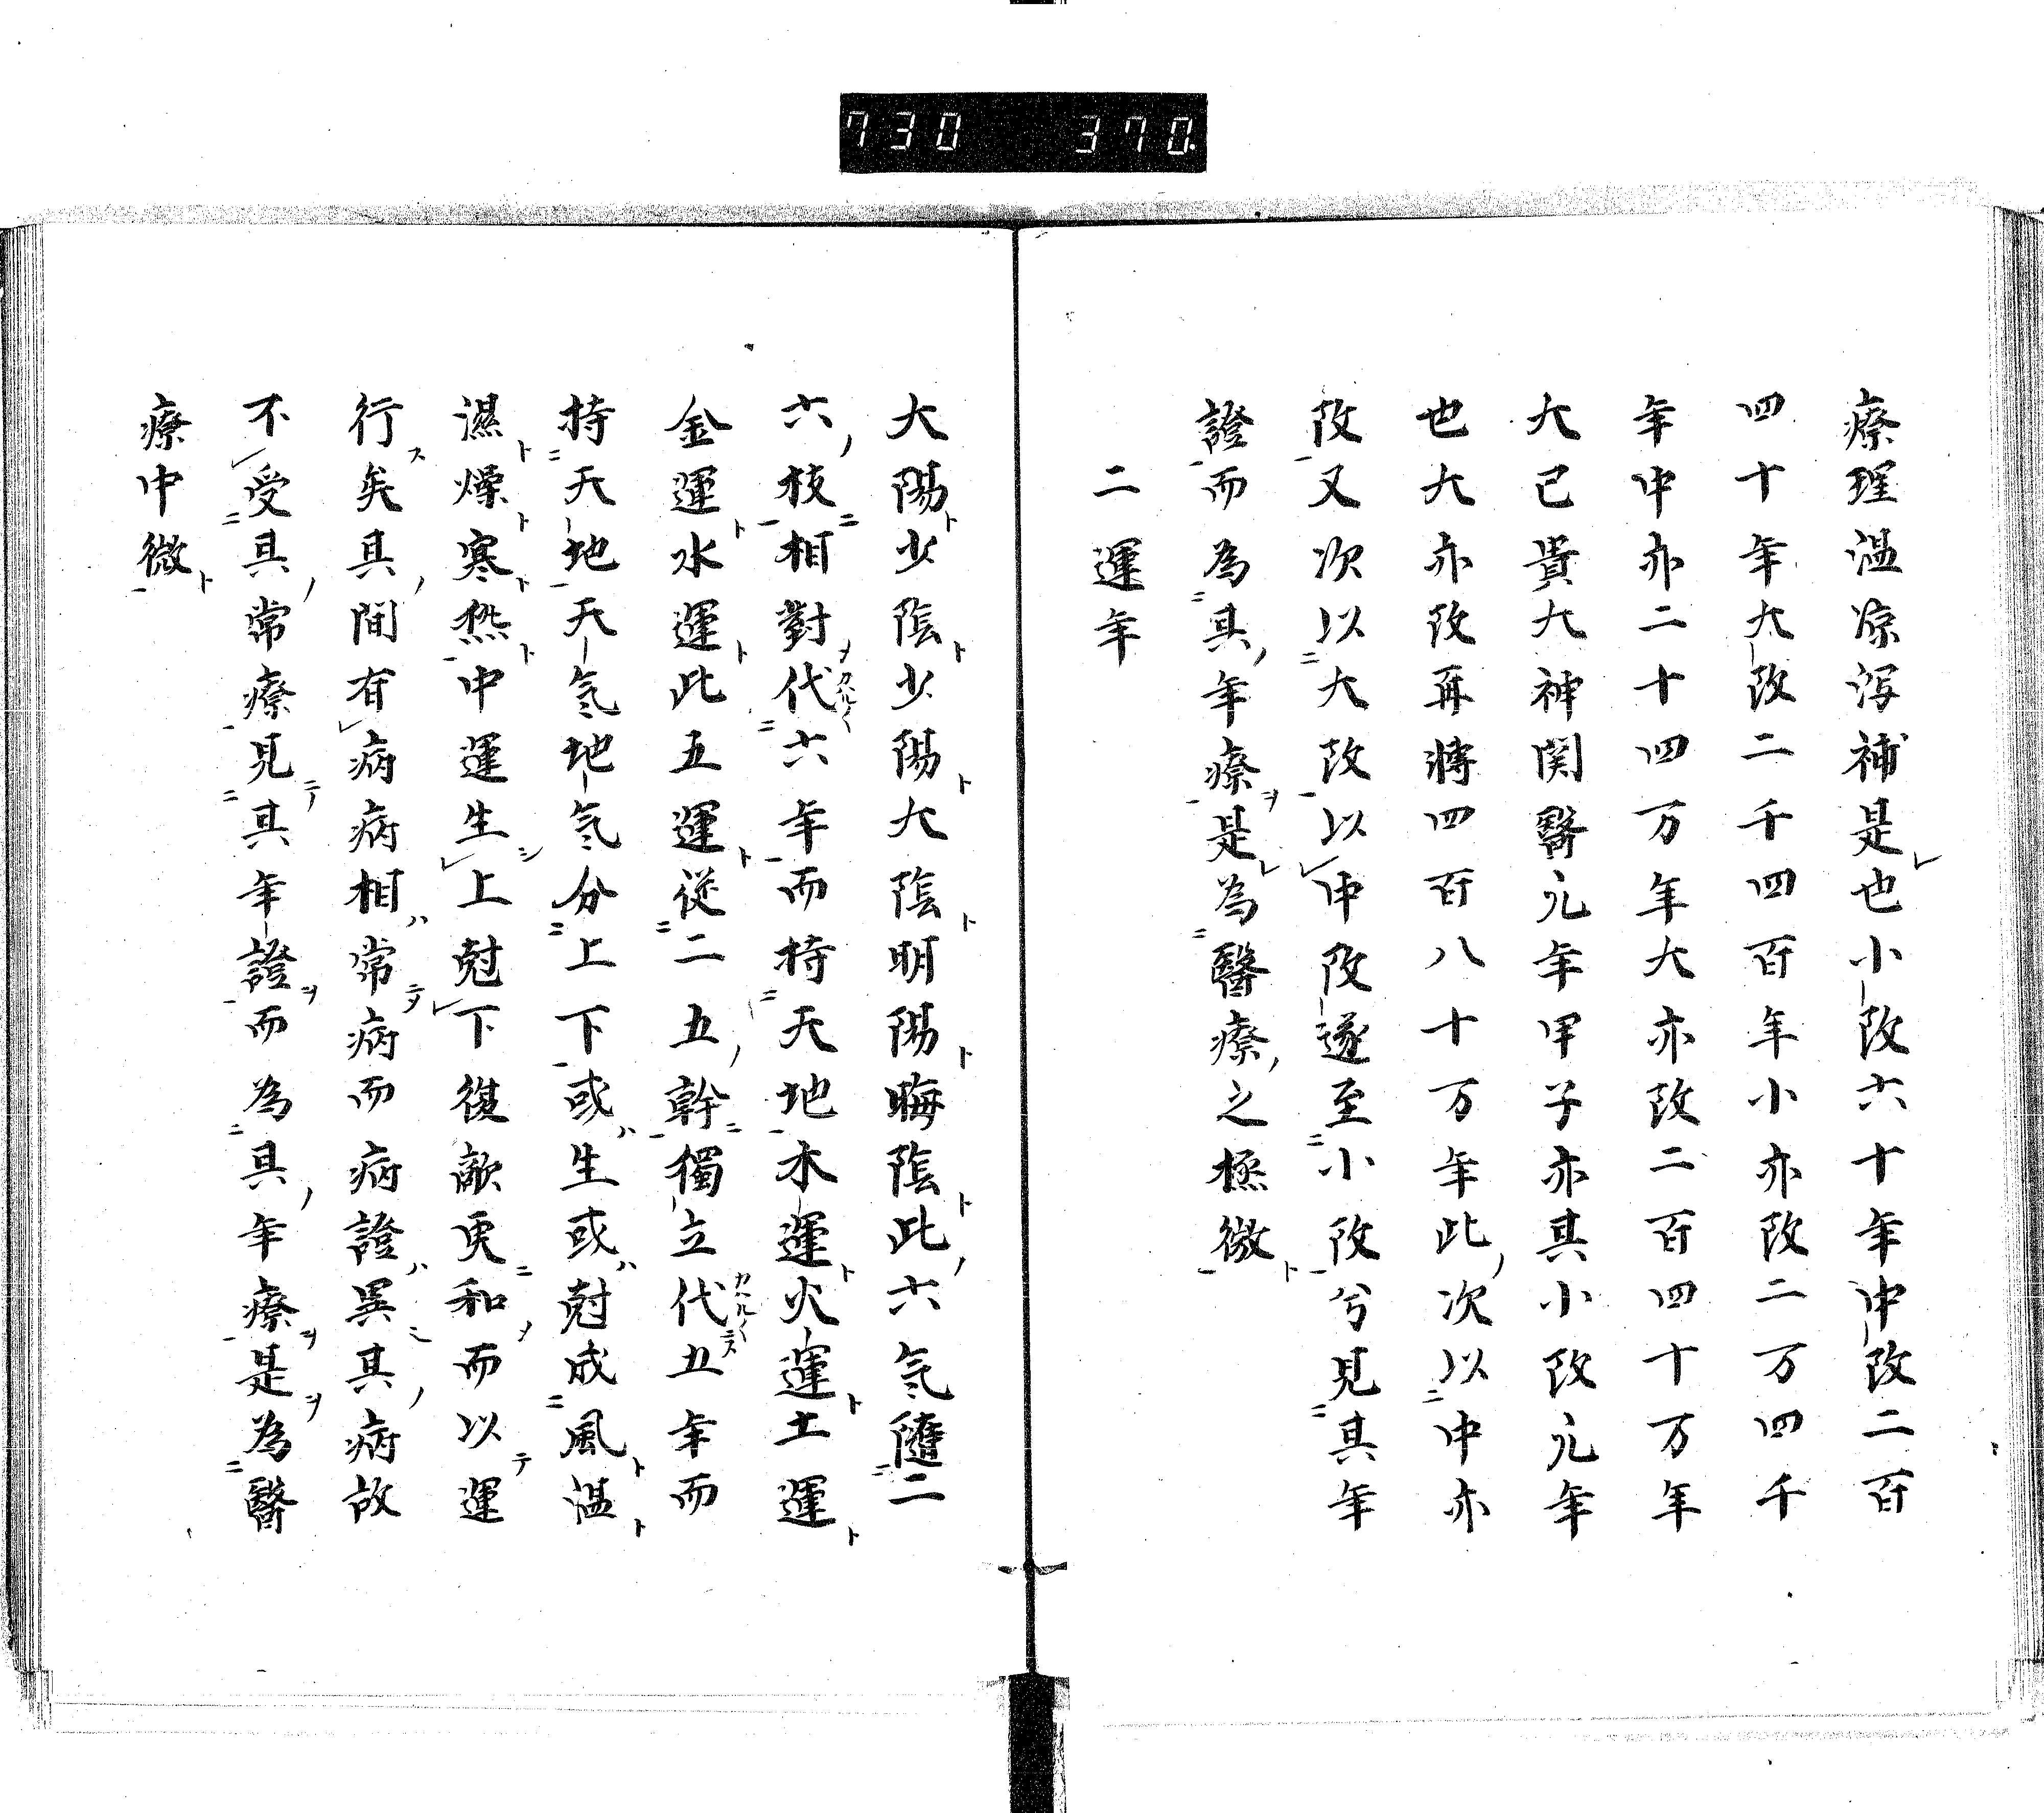 730 370
療理温凉瀉補是也小改六十年中改二百
四十年大改二千四百年小亦改二万四千
年中亦二十四万年大亦改二百四十万年
大已貴大神関醫元年甲子亦其小改元年
也大亦改再將四百八十万年此次以中亦
改又次以大改以中改遂至小改兮見其年
證而為其年療是為醫療之極微
二運年
大陽少陰少陽大陰明陽晦陰此六氣隨二
六枝相對代六年而持天地木運火運土運
金運水運此五運從二五幹獨立代五年而
持天地天氣地氣分上下或生或尅成風温
濕燥寒熱中運生上尅下復敵更和而以運
行矣其間有病病相常病而病證異其病故
不受其常療見其年證而為其年療是為醫
療中微